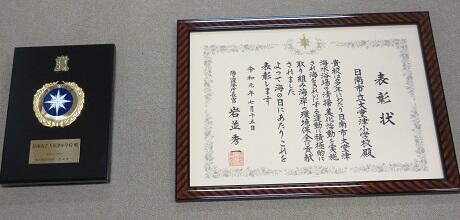 表彰状
日南市立大堂津小学校殿
貴校は多年にわたり日南市大堂津
海水浴場の清掃美化活動を実施
され海をきれいにする運動に積極的に
取り組み海岸の環境保全に貢献
されました
よって海の日にあたりこれを
表彰します
令和元年七月十五日
海上保安庁長官 岩並秀一